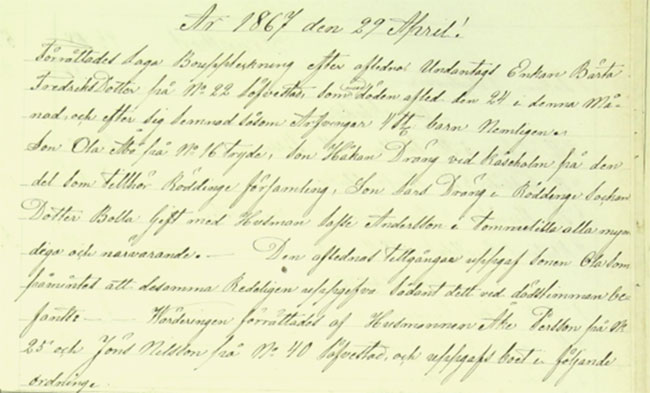 År 1867 den 29 April!
Förrättades laga Bouppteckning efter aflednа Undantags Enkan Bärta
FredriksDotter på No 22 Löfvestad, som med döden afled den 24 i denna Må-
nad, och efter sig lemnad såsom Arfvingar 4 st barn Nemligen.
Son Ola Åbo på No 16 Tryde, Son Håkan Dräng vid Kåseholm på den
del som tillhör Röddinge församling, Son Lars Dräng i Röddenge Sockan
Dotter Bolla Gift med Husman Andersson i Tommelilla alla myn
diga och närvarande. — Den aflednas tillgångar uppgaf sonen Ola som
påmintes att desamma Redeligen uppgifva sådant dett vid dödstimman be
fantts — Wärderingen förrättades af Husmannen Åke Persson på No
25 och Jöns Nilsson på No 40 Löfvestad, och uppgafs boet i följande
ordning.